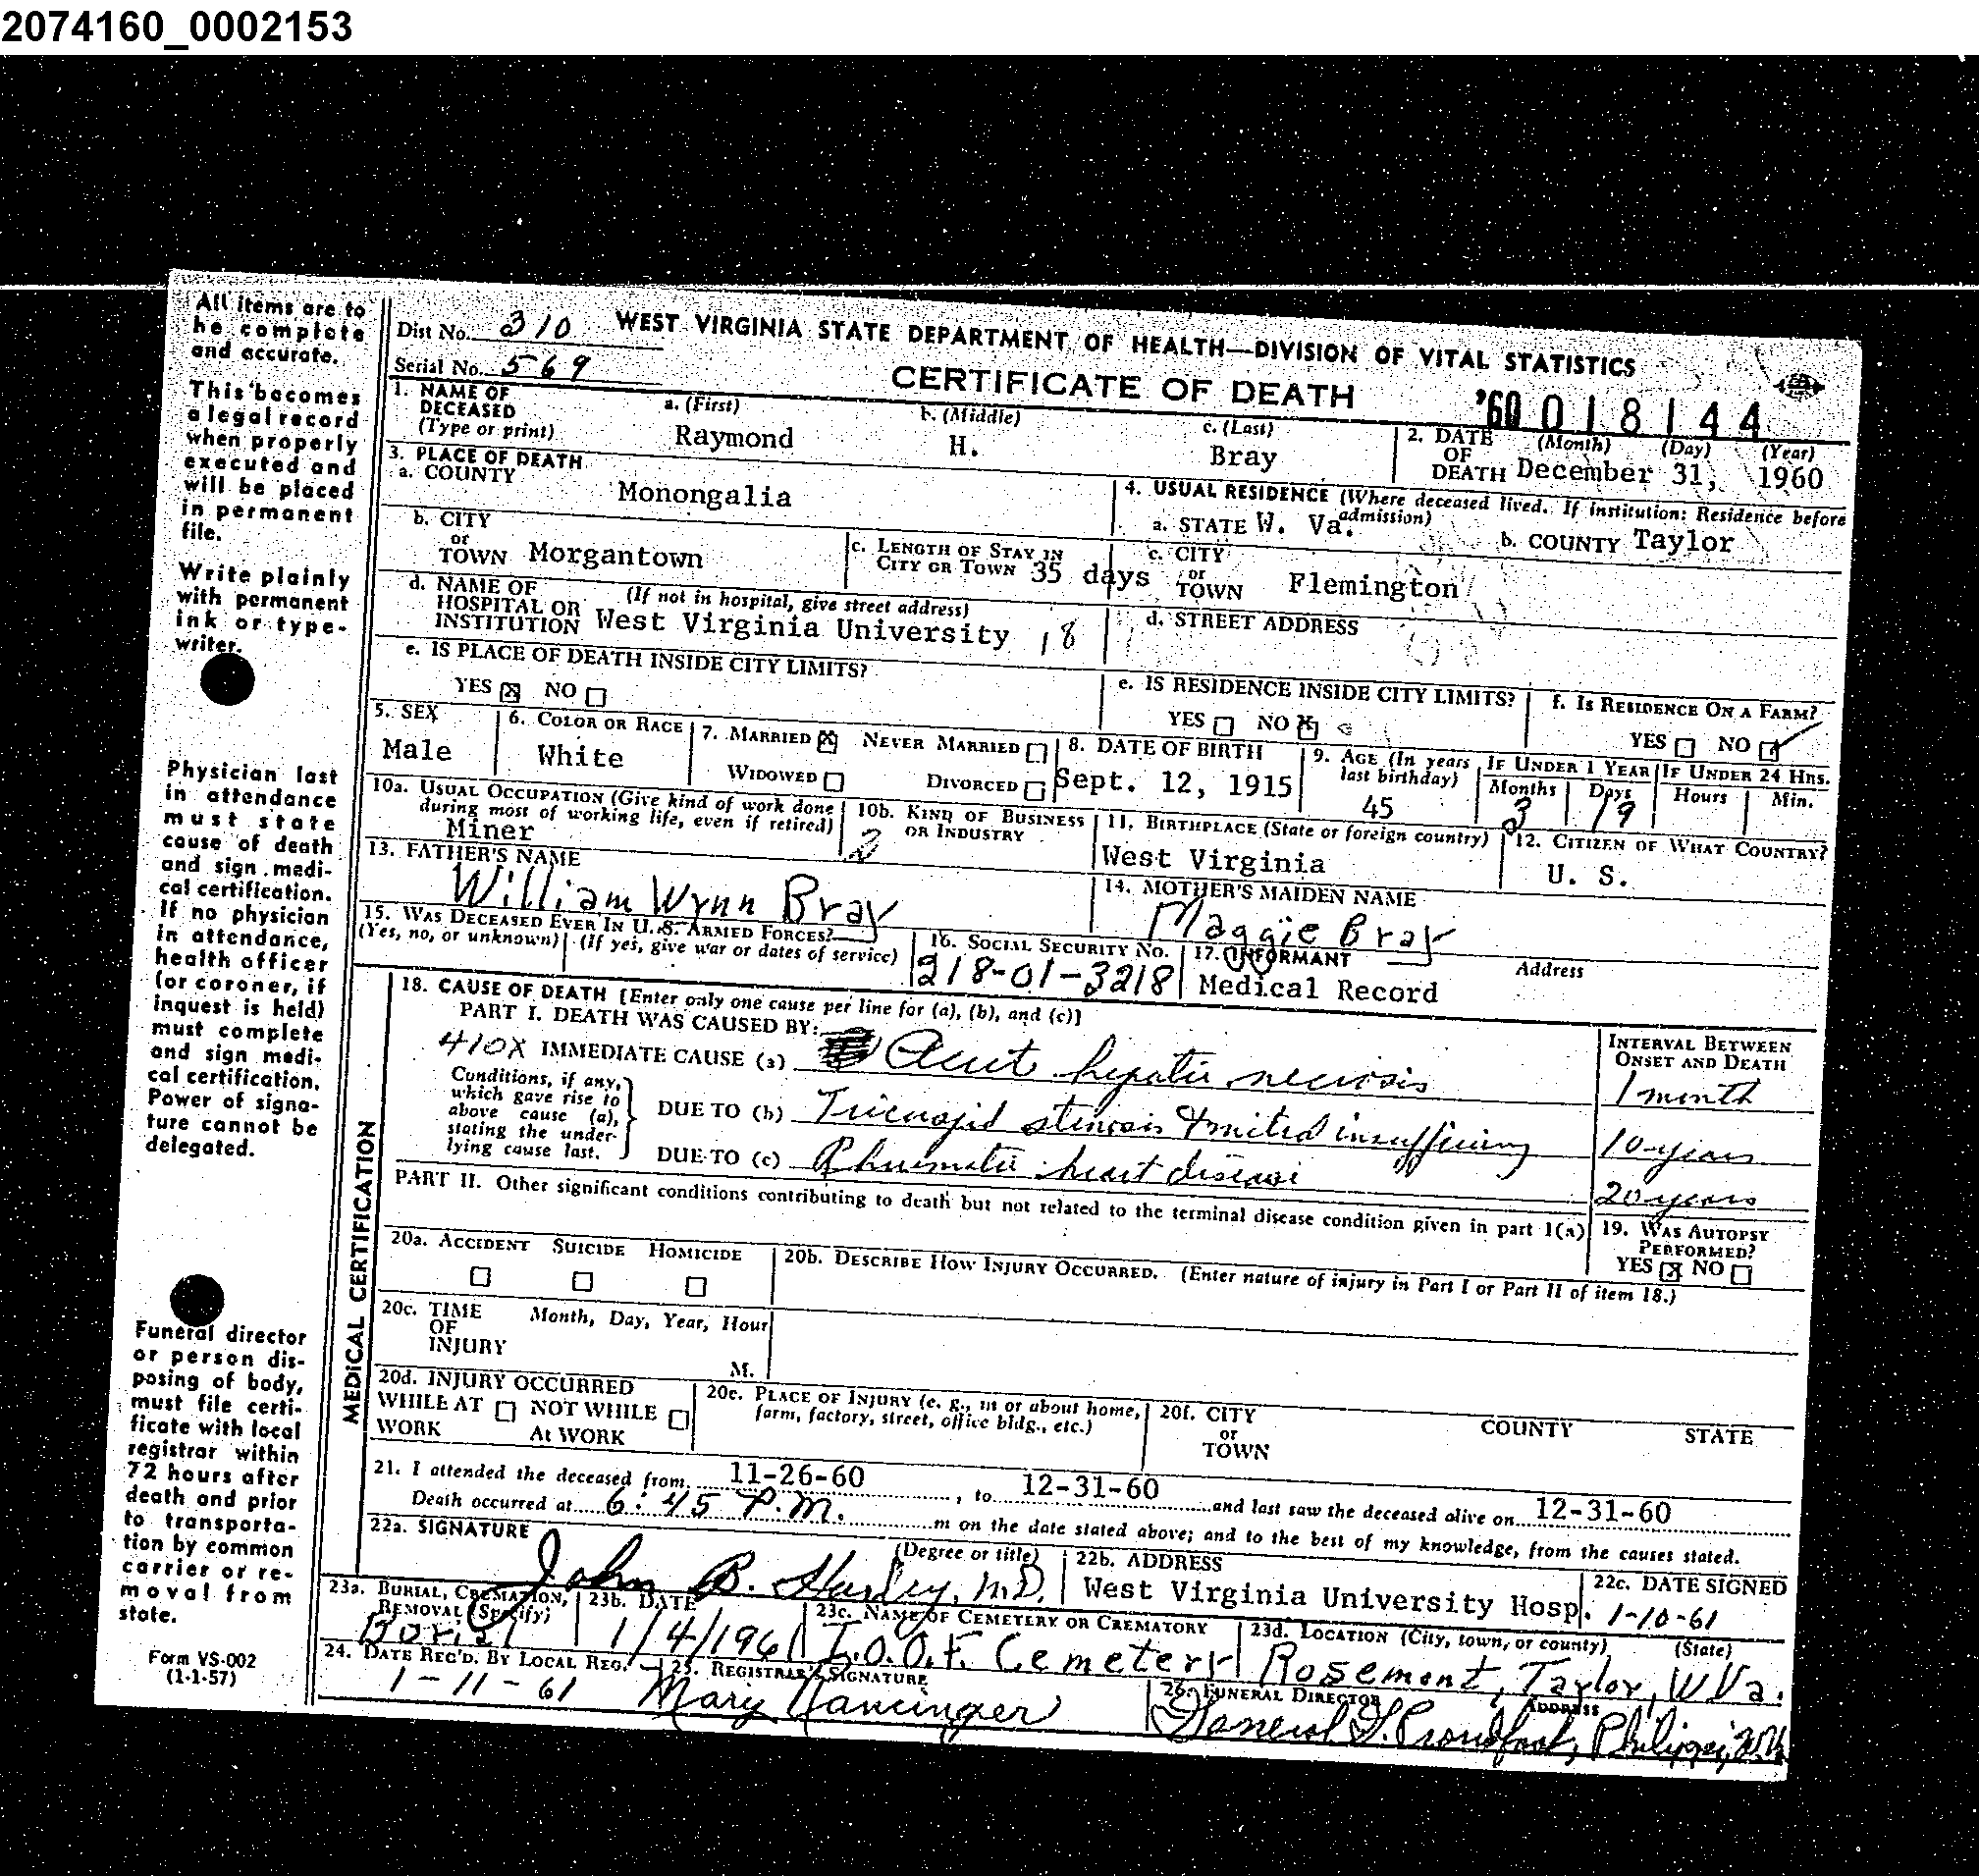 2074160_0002153
All items are to
be complete
and accurate.
This becomes
a legal record
when properly
executed and
will be placed
in permanent
file.
Write plainly
with permanent
ink or type-
writer.
Physician last
in attendance
must state
cause of death
and sign medi-
cal certification.
If no physician
in attendance,
health officer
(or coroner, if
inquest is held)
must complete
and sign medi-
cal certification.
Power of signa-
ture cannot be
delegated.
Funeral director
or person dis-
posing of body,
must file certi-
ficate with local
registrar within
72 hours after
death and prior
to transporta-
tion by common
carrier or re-
moval from
state.
Form VS-002
(1-1-57)
Dist No. 310 WEST VIRGINIA STATE DEPARTMENT OF HEALTH—DIVISION OF VITAL STATISTICS
Serial No. 569 CERTIFICATE OF DEATH '60 018144
1. NAME OF DECEASED (Type or print) a. (First) Raymond b. (Middle) H. c. (Last) Bray 2. DATE OF DEATH (Month) (Day) (Year) December 31, 1960
3. PLACE OF DEATH a. COUNTY Monongalia
4. USUAL RESIDENCE (Where deceased lived. If institution: Residence before admission) a. STATE W. Va. b. COUNTY Taylor
b. CITY or TOWN Morgantown c. LENGTH OF STAY IN CITY OR TOWN 35 days c. CITY or TOWN Flemington
d. NAME OF HOSPITAL OR INSTITUTION (If not in hospital, give street address) West Virginia University 18 d. STREET ADDRESS
e. IS PLACE OF DEATH INSIDE CITY LIMITS? YES ☒ NO ☐ e. IS RESIDENCE INSIDE CITY LIMITS? YES ☐ NO ☒ f. IS RESIDENCE ON A FARM? YES ☐ NO ☑
5. SEX Male 6. COLOR OR RACE White 7. MARRIED ☒ NEVER MARRIED ☐ WIDOWED ☐ DIVORCED ☐ 8. DATE OF BIRTH Sept. 12, 1915 9. AGE (In years last birthday) 45 IF UNDER 1 YEAR Months 3 Days 19 IF UNDER 24 HRS. Hours Min.
10a. USUAL OCCUPATION (Give kind of work done during most of working life, even if retired) Miner 10b. KIND OF BUSINESS OR INDUSTRY 11. BIRTHPLACE (State or foreign country) West Virginia 12. CITIZEN OF WHAT COUNTRY? U. S.
13. FATHER'S NAME William Wynn Bray 14. MOTHER'S MAIDEN NAME Maggie Bray
15. WAS DECEASED EVER IN U. S. ARMED FORCES? (Yes, no, or unknown) (If yes, give war or dates of service) 16. SOCIAL SECURITY NO. 218-01-3218 17. INFORMANT Medical Record Address
MEDICAL CERTIFICATION
18. CAUSE OF DEATH [Enter only one cause per line for (a), (b), and (c)]
PART I. DEATH WAS CAUSED BY: INTERVAL BETWEEN ONSET AND DEATH
410X IMMEDIATE CAUSE (a) Acute hepatic necrosis 1 month
Conditions, if any, which gave rise to above cause (a), stating the under-lying cause last.
DUE TO (b) Tricuspid stenosis & mitral insufficiency 10 years
DUE TO (c) Rhumatic heart disease 20 years
PART II. Other significant conditions contributing to death but not related to the terminal disease condition given in part I(a) 19. WAS AUTOPSY PERFORMED? YES ☒ NO ☐
20a. ACCIDENT ☐ SUICIDE ☐ HOMICIDE ☐ 20b. DESCRIBE HOW INJURY OCCURRED. (Enter nature of injury in Part I or Part II of item 18.)
20c. TIME OF INJURY Month, Day, Year, Hour M.
20d. INJURY OCCURRED WHILE AT WORK ☐ NOT WHILE At WORK ☐ 20e. PLACE OF INJURY (e. g., in or about home, farm, factory, street, office bldg., etc.) 20f. CITY or TOWN COUNTY STATE
21. I attended the deceased from 11-26-60, to 12-31-60 and last saw the deceased alive on 12-31-60
Death occurred at 6:45 P.M. m on the date stated above; and to the best of my knowledge, from the causes stated.
22a. SIGNATURE John B. Harley, M.D. (Degree or title) 22b. ADDRESS West Virginia University Hosp. 22c. DATE SIGNED 1-10-61
23a. BURIAL, CREMATION, REMOVAL (Specify) Burial 23b. DATE 1/4/1961 23c. NAME OF CEMETERY OR CREMATORY I.O.O.F. Cemetery 23d. LOCATION (City, town, or county) (State) Rosemont, Taylor, W Va.
24. DATE REC'D. BY LOCAL REG. 1-11-61 25. REGISTRAR'S SIGNATURE Mary 26. FUNERAL DIRECTOR ADDRESS Proudfoot, Philippi, W.Va.